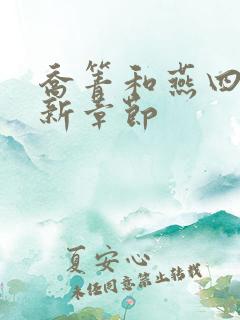 乔箐和燕四
新章节
夏安心
未经同意禁止转载